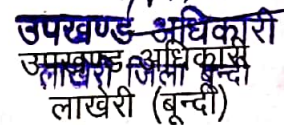 उपखण्ड अधिकारी
उपखण्ड अधिकारी
लाखेरी जिला बून्दी
लाखेरी (बून्दी)